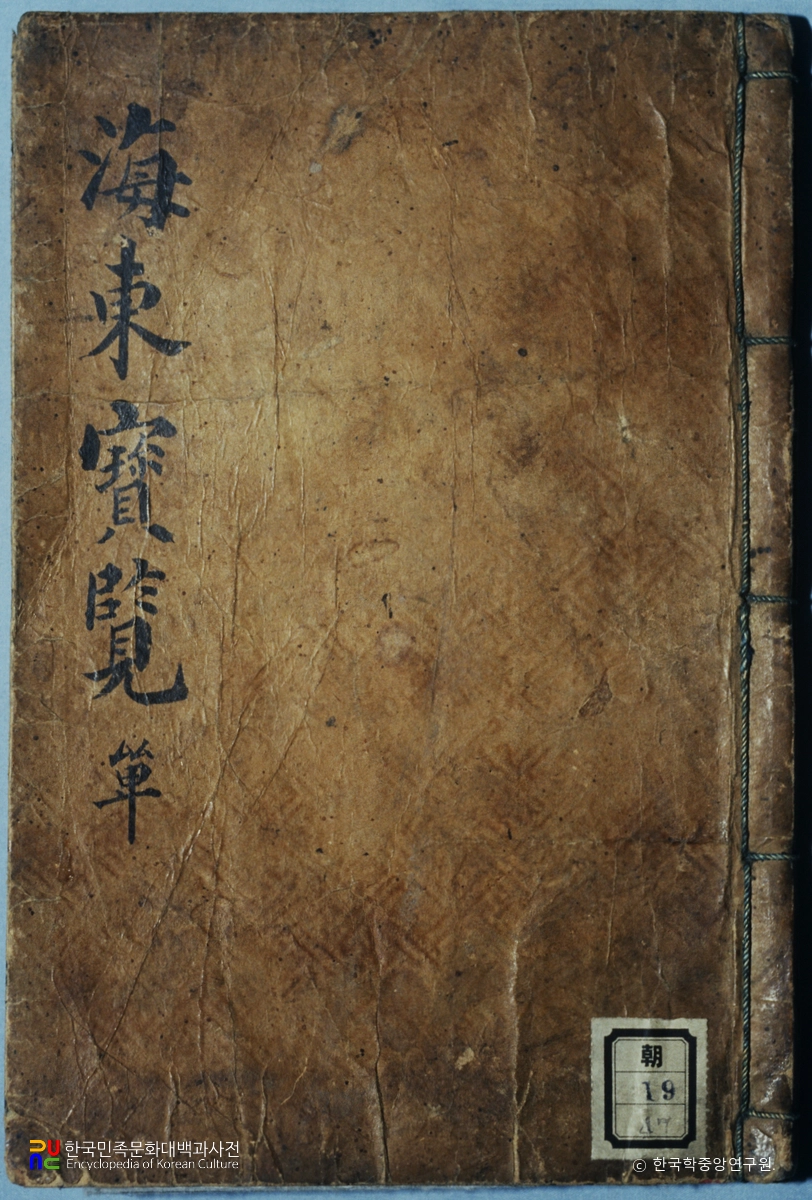 海東寶覽 單
朝
19
한국민족문화대백과사전
Encyclopedia of Korean Culture
© 한국학중앙연구원